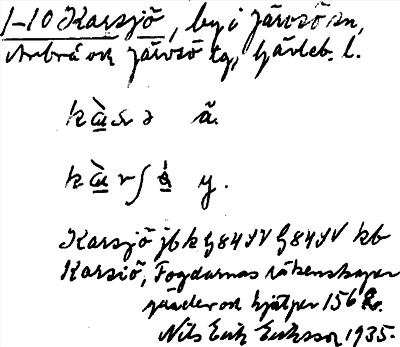 1-10 Karsjö, by i Järvsö sn,
Arbrå och Järvsö tg, Gävleb. l.
ä.
y.
Karsjö jbk G84IV G84IV kb
Karsiö, Fogdarnas räkenskaper
gärder och hjälper 156
Nils Erik Eriksson 1935.